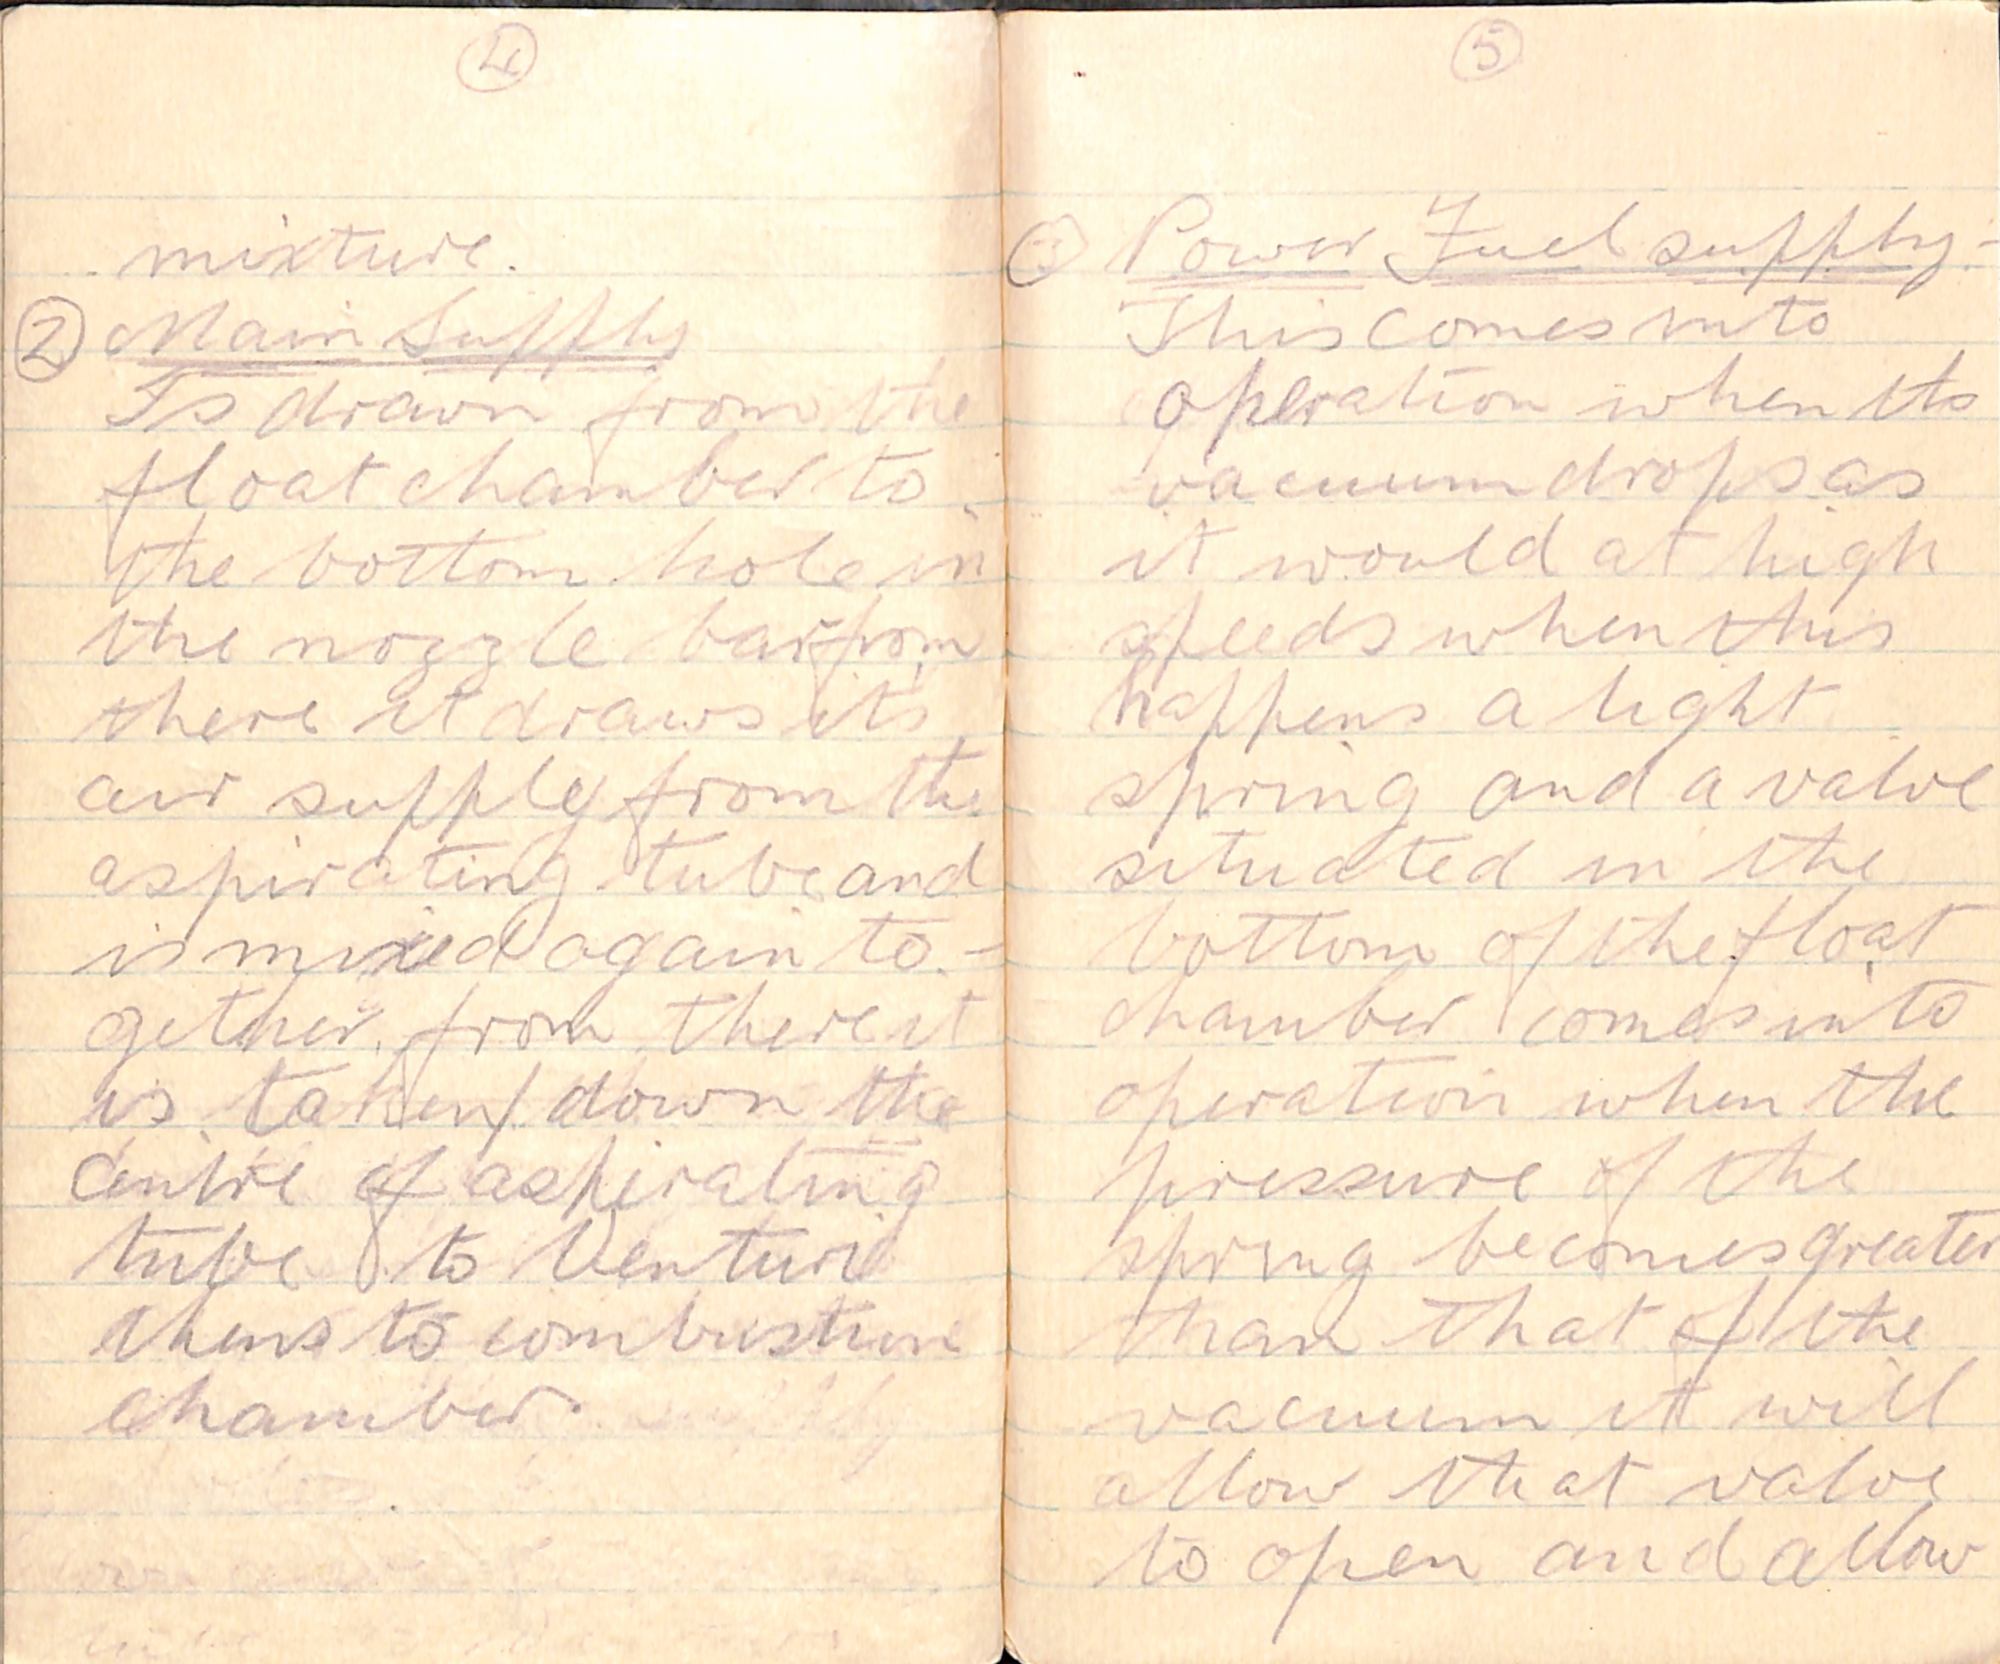 4
mixture.
2 Main Supply
Is drawn from the
float chamber to
the bottom hole in
the nozzle bar from
there it draws its
air supply from the
aspirating tube and
is mixed again to-
gether, from there it
is taken down the
Centre of aspirating
tube to Venturi
thens to combustion
chamber.
5
3 Power Fuel supply-
This comes into
operation when its
vacuum drops as
it would at high
speeds when this
happens a light
spring and a valve
situated in the
bottom of the float
chamber comes into
operation when the
pressure of the
spring becomes greater
than that of the
vacuum it will
allow that valve
to open and allow